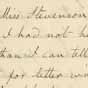 Miss Stevenson
I had not h
than I can tell
for letter wor